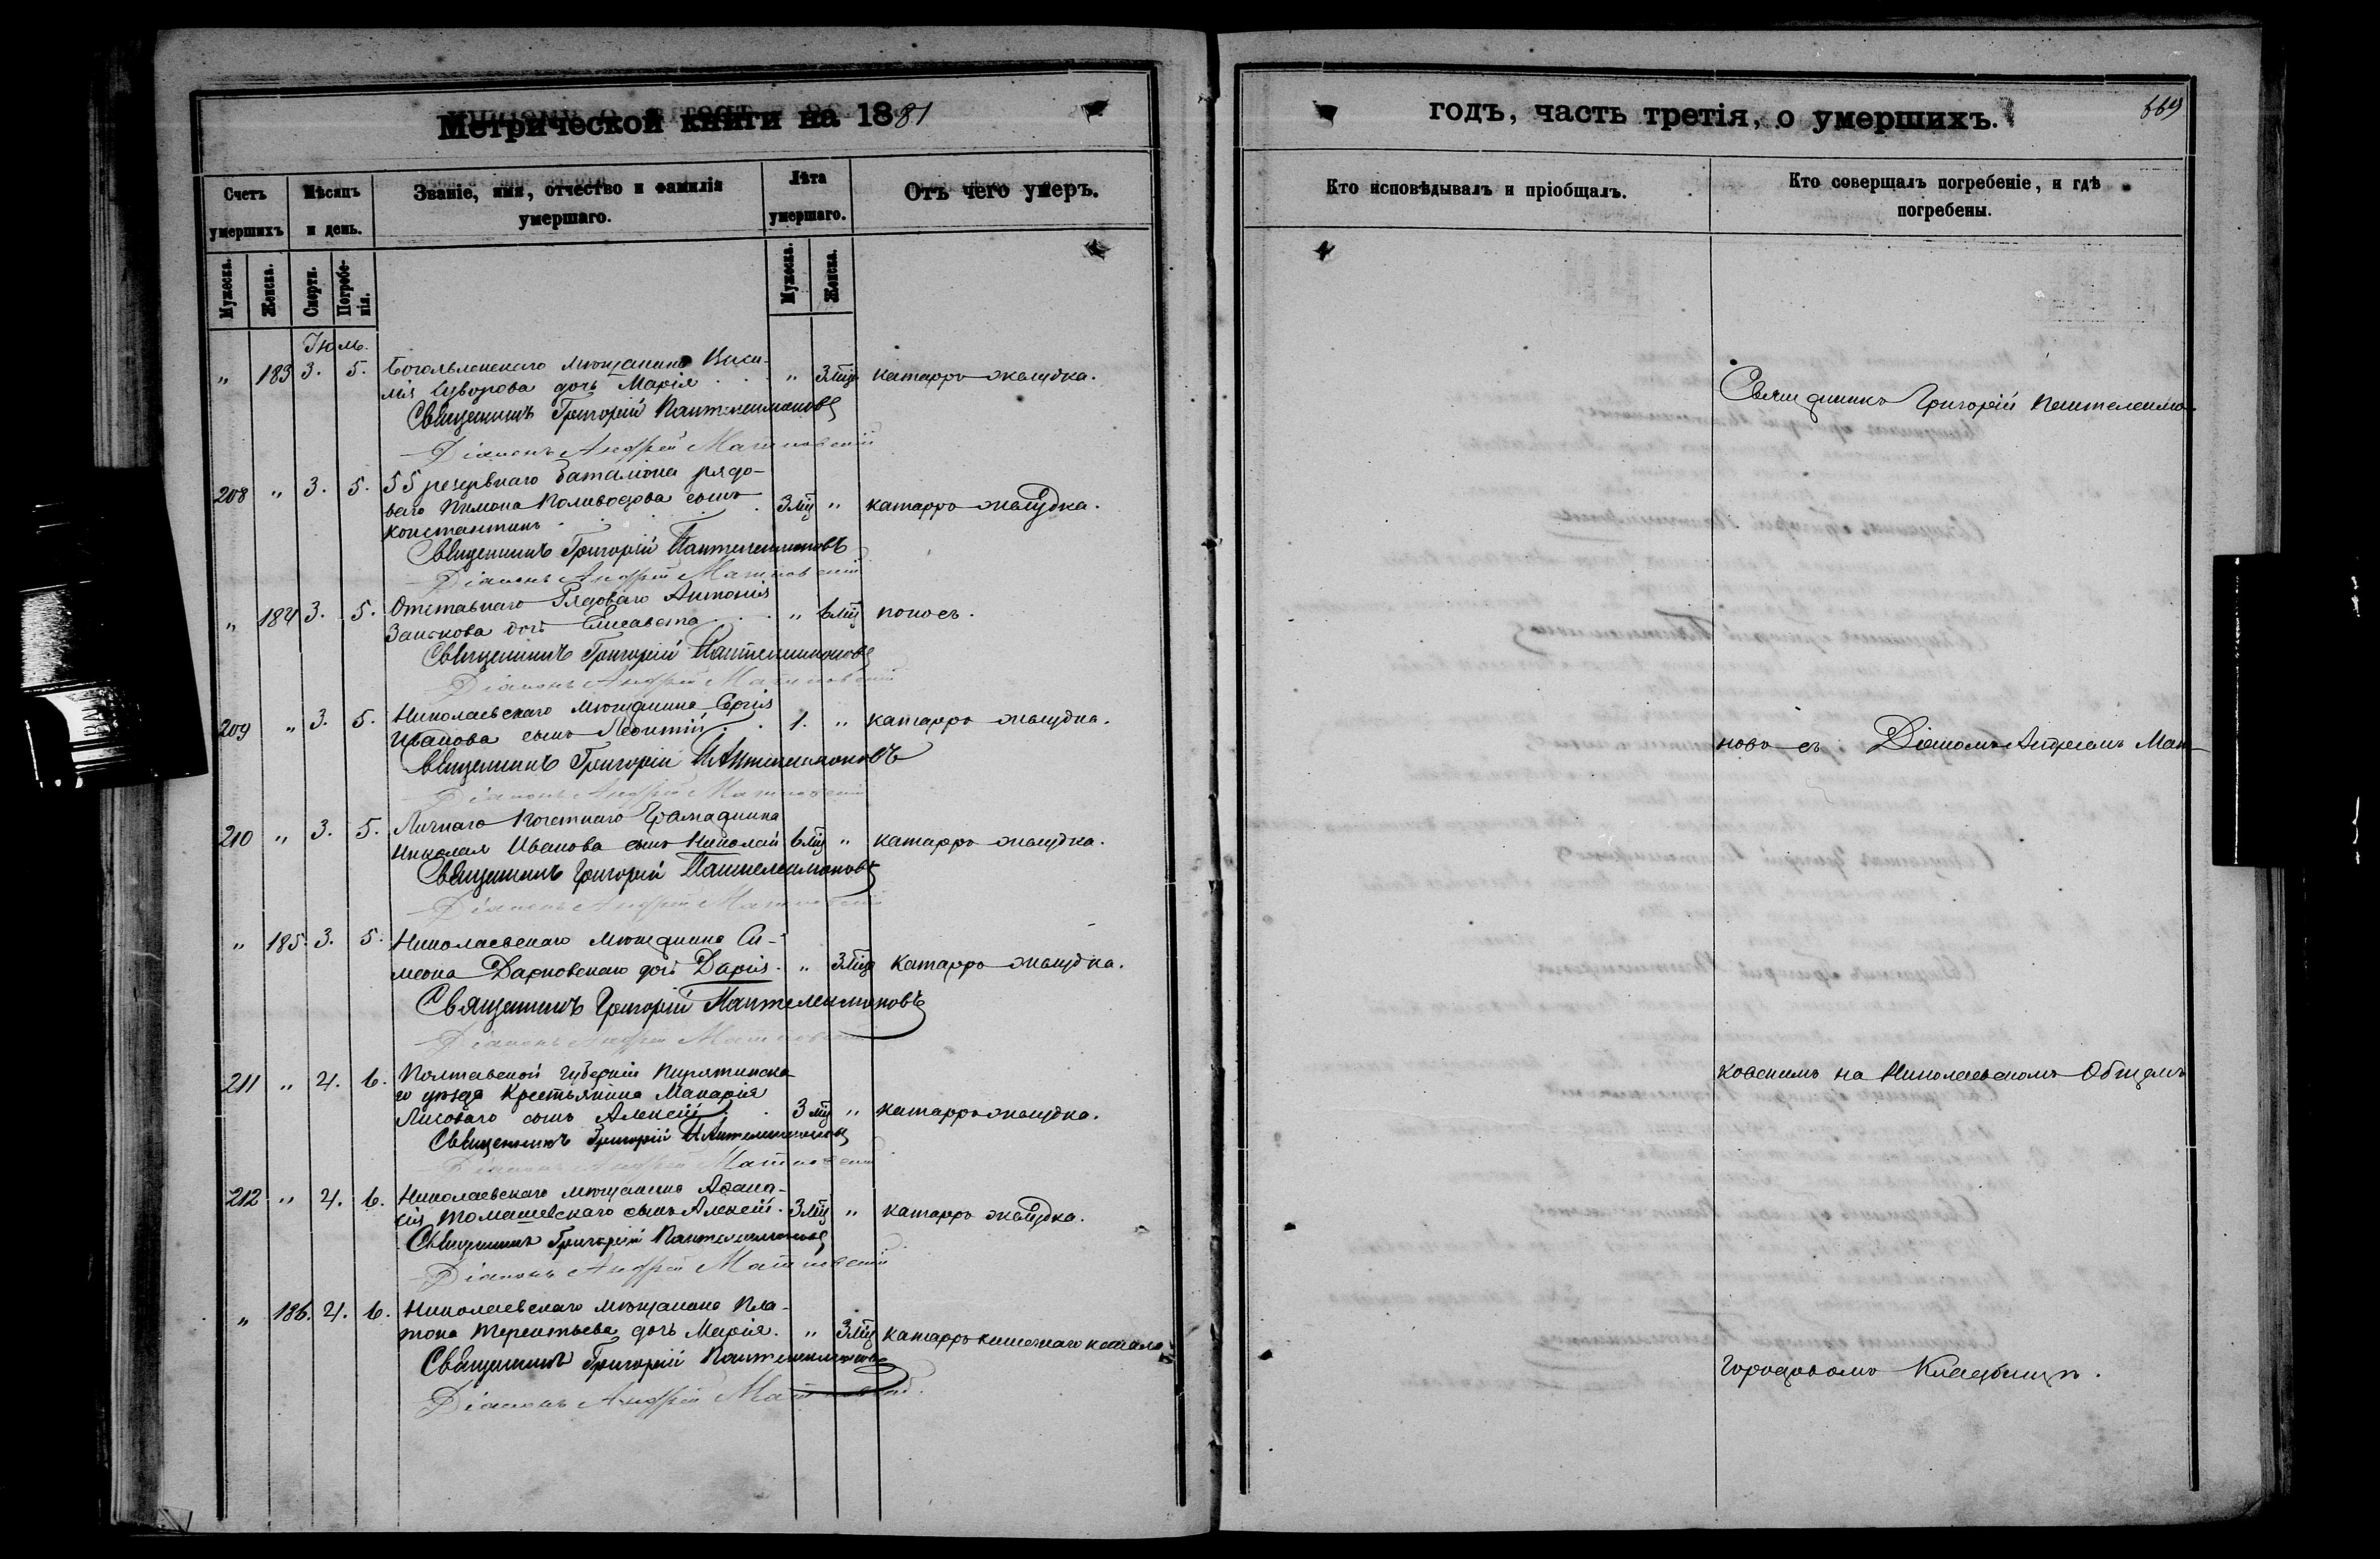 Метрической книги на 1881
годъ, часть третія, о умершихъ.
669
Счетъ умершихъ
Мѣсяцъ и день.
Званіе, имя, отчество и фамилія умершаго.
Лѣта умершаго.
Отъ чего умеръ.
Кто исповѣдывалъ и пріобщалъ.
Кто совершалъ погребеніе, и гдѣ
погребены.
Мужеска.
Женска.
Смерти.
Погребенія.
Мужеска.
Женска.
Іюль.
" 183 3. 5. мѣщанина Васи-
лія Суворова дочь Марія " 3 мѣц катарръ желудка.
Священникъ Григорій Пантелеимоновъ
Діаконъ Андрей
208 " 3. 5. 55 резервнаго баталіона рядо-
ваго Пимона Коливодова сынъ 3 мц " катарръ желудка.
Константинъ
Священникъ Григорій Пантелеимоновъ
Діаконъ Андрей
" 184 3. 5. Отставнаго Рядоваго Антонія
дочь Елисавета " 6 мц поносъ.
Священникъ Григорій Пантелеимоновъ
Діаконъ Андрей
209 " 3. 5. Николаевскаго мѣщанина Сергія
Иванова сынъ Леонтій 1. " катарръ желудка.
Священникъ Григорій Пантелеимоновъ
Діаконъ Андрей
210 " 3. 5. Личнаго Почетнаго Гражданина
Николая Иванова сынъ Николай 6 мц " катарръ желудка.
Священникъ Григорій Пантелеимоновъ
Діаконъ Андрей
" 185. 3. 5. Николаевскаго мѣщанина Си-
меона дочь Дарія. " 3 мѣц катарръ желудка.
Священникъ Григорій Пантелеимоновъ
Діаконъ Андрей
211 " 4. 6. Полтавской губерніи Пирятинска-
го уѣзда Крестьянина Макарія
Лисоваго сынъ Алексій 3 мц " катарръ желудка.
Священникъ Григорій Пантелеимоновъ
Діаконъ Андрей
212 " 4. 6. Николаевскаго мѣщанина Аѳана-
сія Томашевскаго сынъ Алексій. 3 мц " катарръ желудка.
Священникъ Григорій Пантелеимоновъ
Діаконъ Андрей
" 186. 4. 6. Николаевскаго мѣщанина Пла-
тона Терентьева дочь Марія. " 3 мц катарръ кишечнаго канала.
Священникъ Григорій Пантелеимоновъ
Діаконъ Андрей
Священникъ Григорій Пантелеимо-
новъ съ Діакономъ Андреемъ
ковскимъ на Николаевскомъ Общемъ
Городовомъ Кладбищѣ.